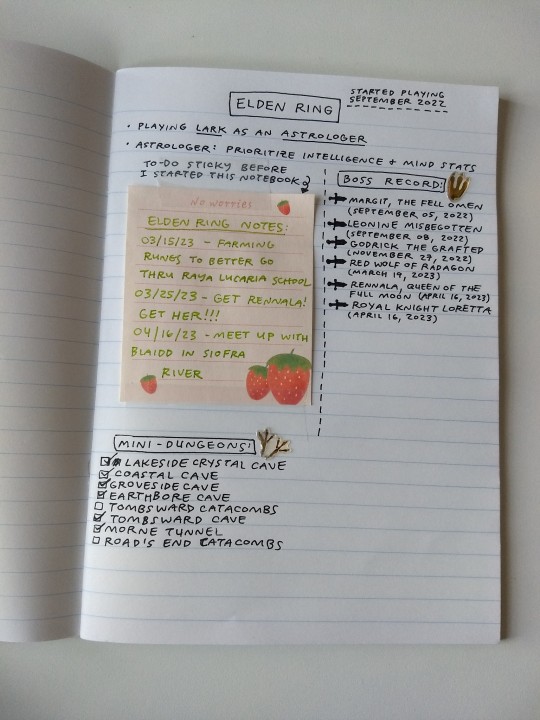 ELDEN RING
STARTED PLAYING
SEPTEMBER 2022
• PLAYING LARK AS AN ASTROLOGER
• ASTROLOGER: PRIORITIZE INTELLIGENCE + MIND STATS
TO-DO STICKY BEFORE
I STARTED THIS NOTEBOOK
No worries
ELDEN RING NOTES:
03/15/23 - FARMING
RUNGS TO BETTER GO
THRU RAYA LUCARIA SCHOOL
03/25/23 - GET RENNALA!
GET HER!!!
04/16/23 - MEET UP WITH
BLAIDD IN SIOFRA
RIVER
BOSS RECORD:
MARGIT, THE FELL OMEN
(SEPTEMBER 05, 2022)
LEONINE MISBEGOTTEN
(SEPTEMBER 08, 2022)
GODRICK THE GRAFTED
(NOVEMBER 27, 2022)
RED WOLF OF RADAGON
(MARCH 19, 2023)
RENNALA, QUEEN OF THE
FULL MOON (APRIL 16, 2023)
ROYAL KNIGHT LORETTA
(APRIL 16, 2023)
MINI-DUNGEONS:
LAKESIDE CRYSTAL CAVE
COASTAL CAVE
GROVESIDE CAVE
EARTHBORE CAVE
TOMBSWARD CATACOMBS
TOMBSWARD CAVE
MORNE TUNNEL
ROAD'S END CATACOMBS